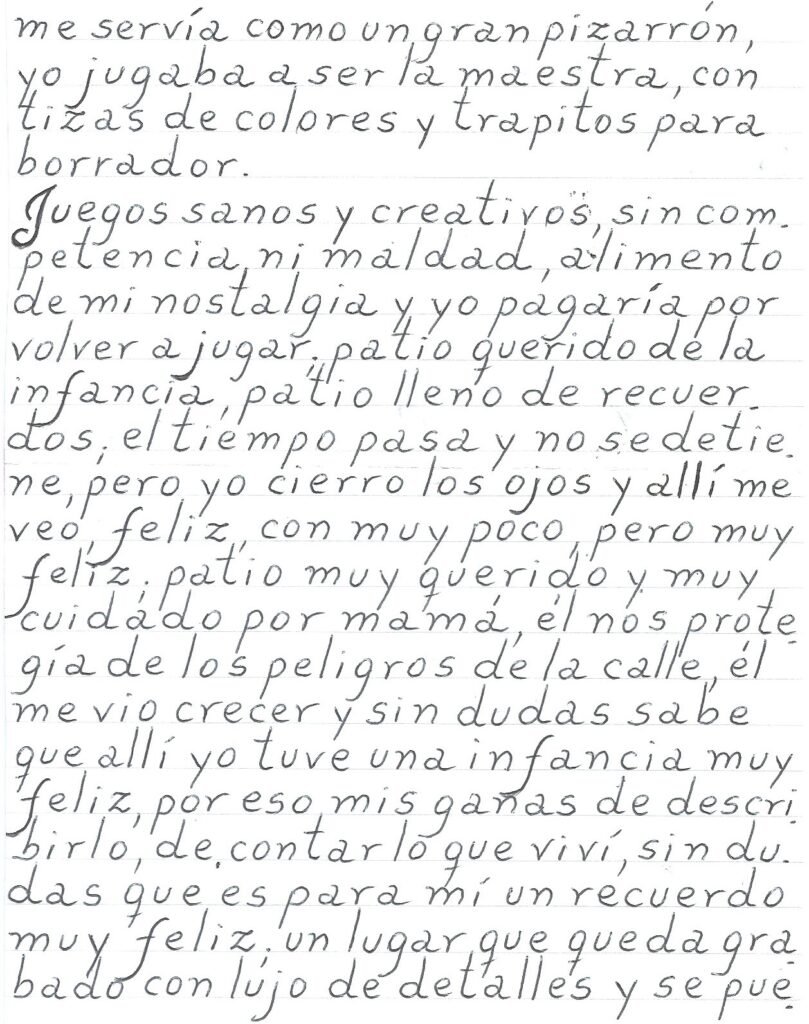 me servía como un gran pizarrón,
yo jugaba a ser la maestra, con
tizas de colores y trapitos para
borrador.
Juegos sanos y creativos, sin com-
petencia, ni maldad, alimento
de mi nostalgia y yo pagaría por
volver a jugar; patio querido de la
infancia, patio lleno de recuer-
dos; el tiempo pasa y no se detie-
ne, pero yo cierro los ojos y allí me
veo, feliz, con muy poco, pero muy
feliz; patio muy querido y muy
cuidado por mamá, él nos prote-
gía de los peligros de la calle, él
me vio crecer y sin dudas sabe
que allí yo tuve una infancia muy
feliz, por eso mis ganas de descri-
birlo, de contar lo que viví, sin du-
das que es para mí un recuerdo
muy feliz; un lugar que queda gra-
bado con lujo de detalles y se pue-